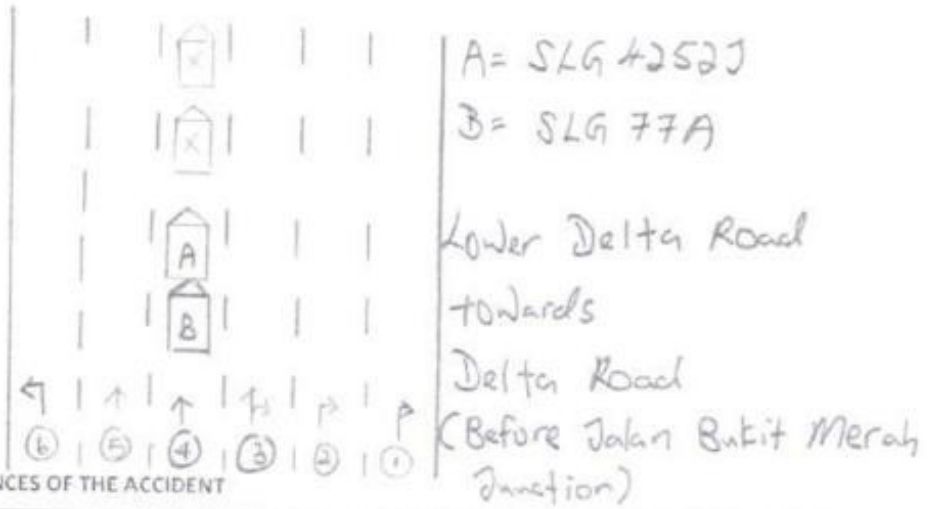 X
X
A
B
A= SLG 4252J
B= SLG 77A
Lower Delta Road
towards
Delta Road
(Before Jalan Bukit Merah
Junction)
6 5 4 3 2 1
NCES OF THE ACCIDENT